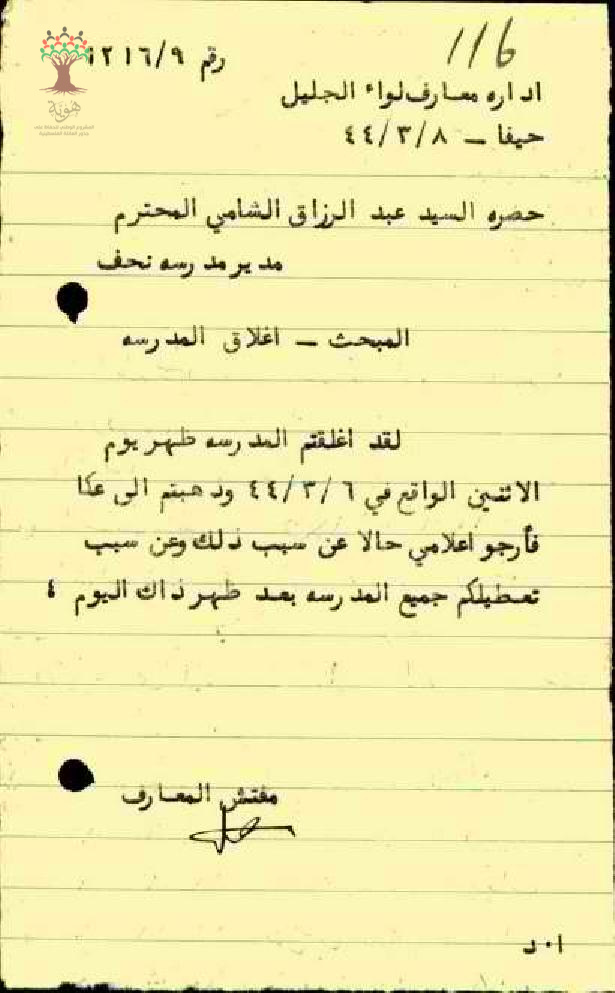 116
رقم ١٢١٦/٩
اداره معارف لواء الجليل
حيفا – ٤٤/٣/٨
حضره السيد عبد الرزاق الشامي المحترم
مدير مدرسه نحف
المبحث – اغلاق المدرسه
لقد اغلقتم المدرسه ظهر يوم
الاثنين الواقع في ٤٤/٣/٦ وذهبتم الى عكا
فأرجو اعلامي حالا عن سبب ذلك وعن سبب
تعطيلكم جميع المدرسه بعد ظهر ذاك اليوم ٤
مفتش المعارف
ا٠د
هوية